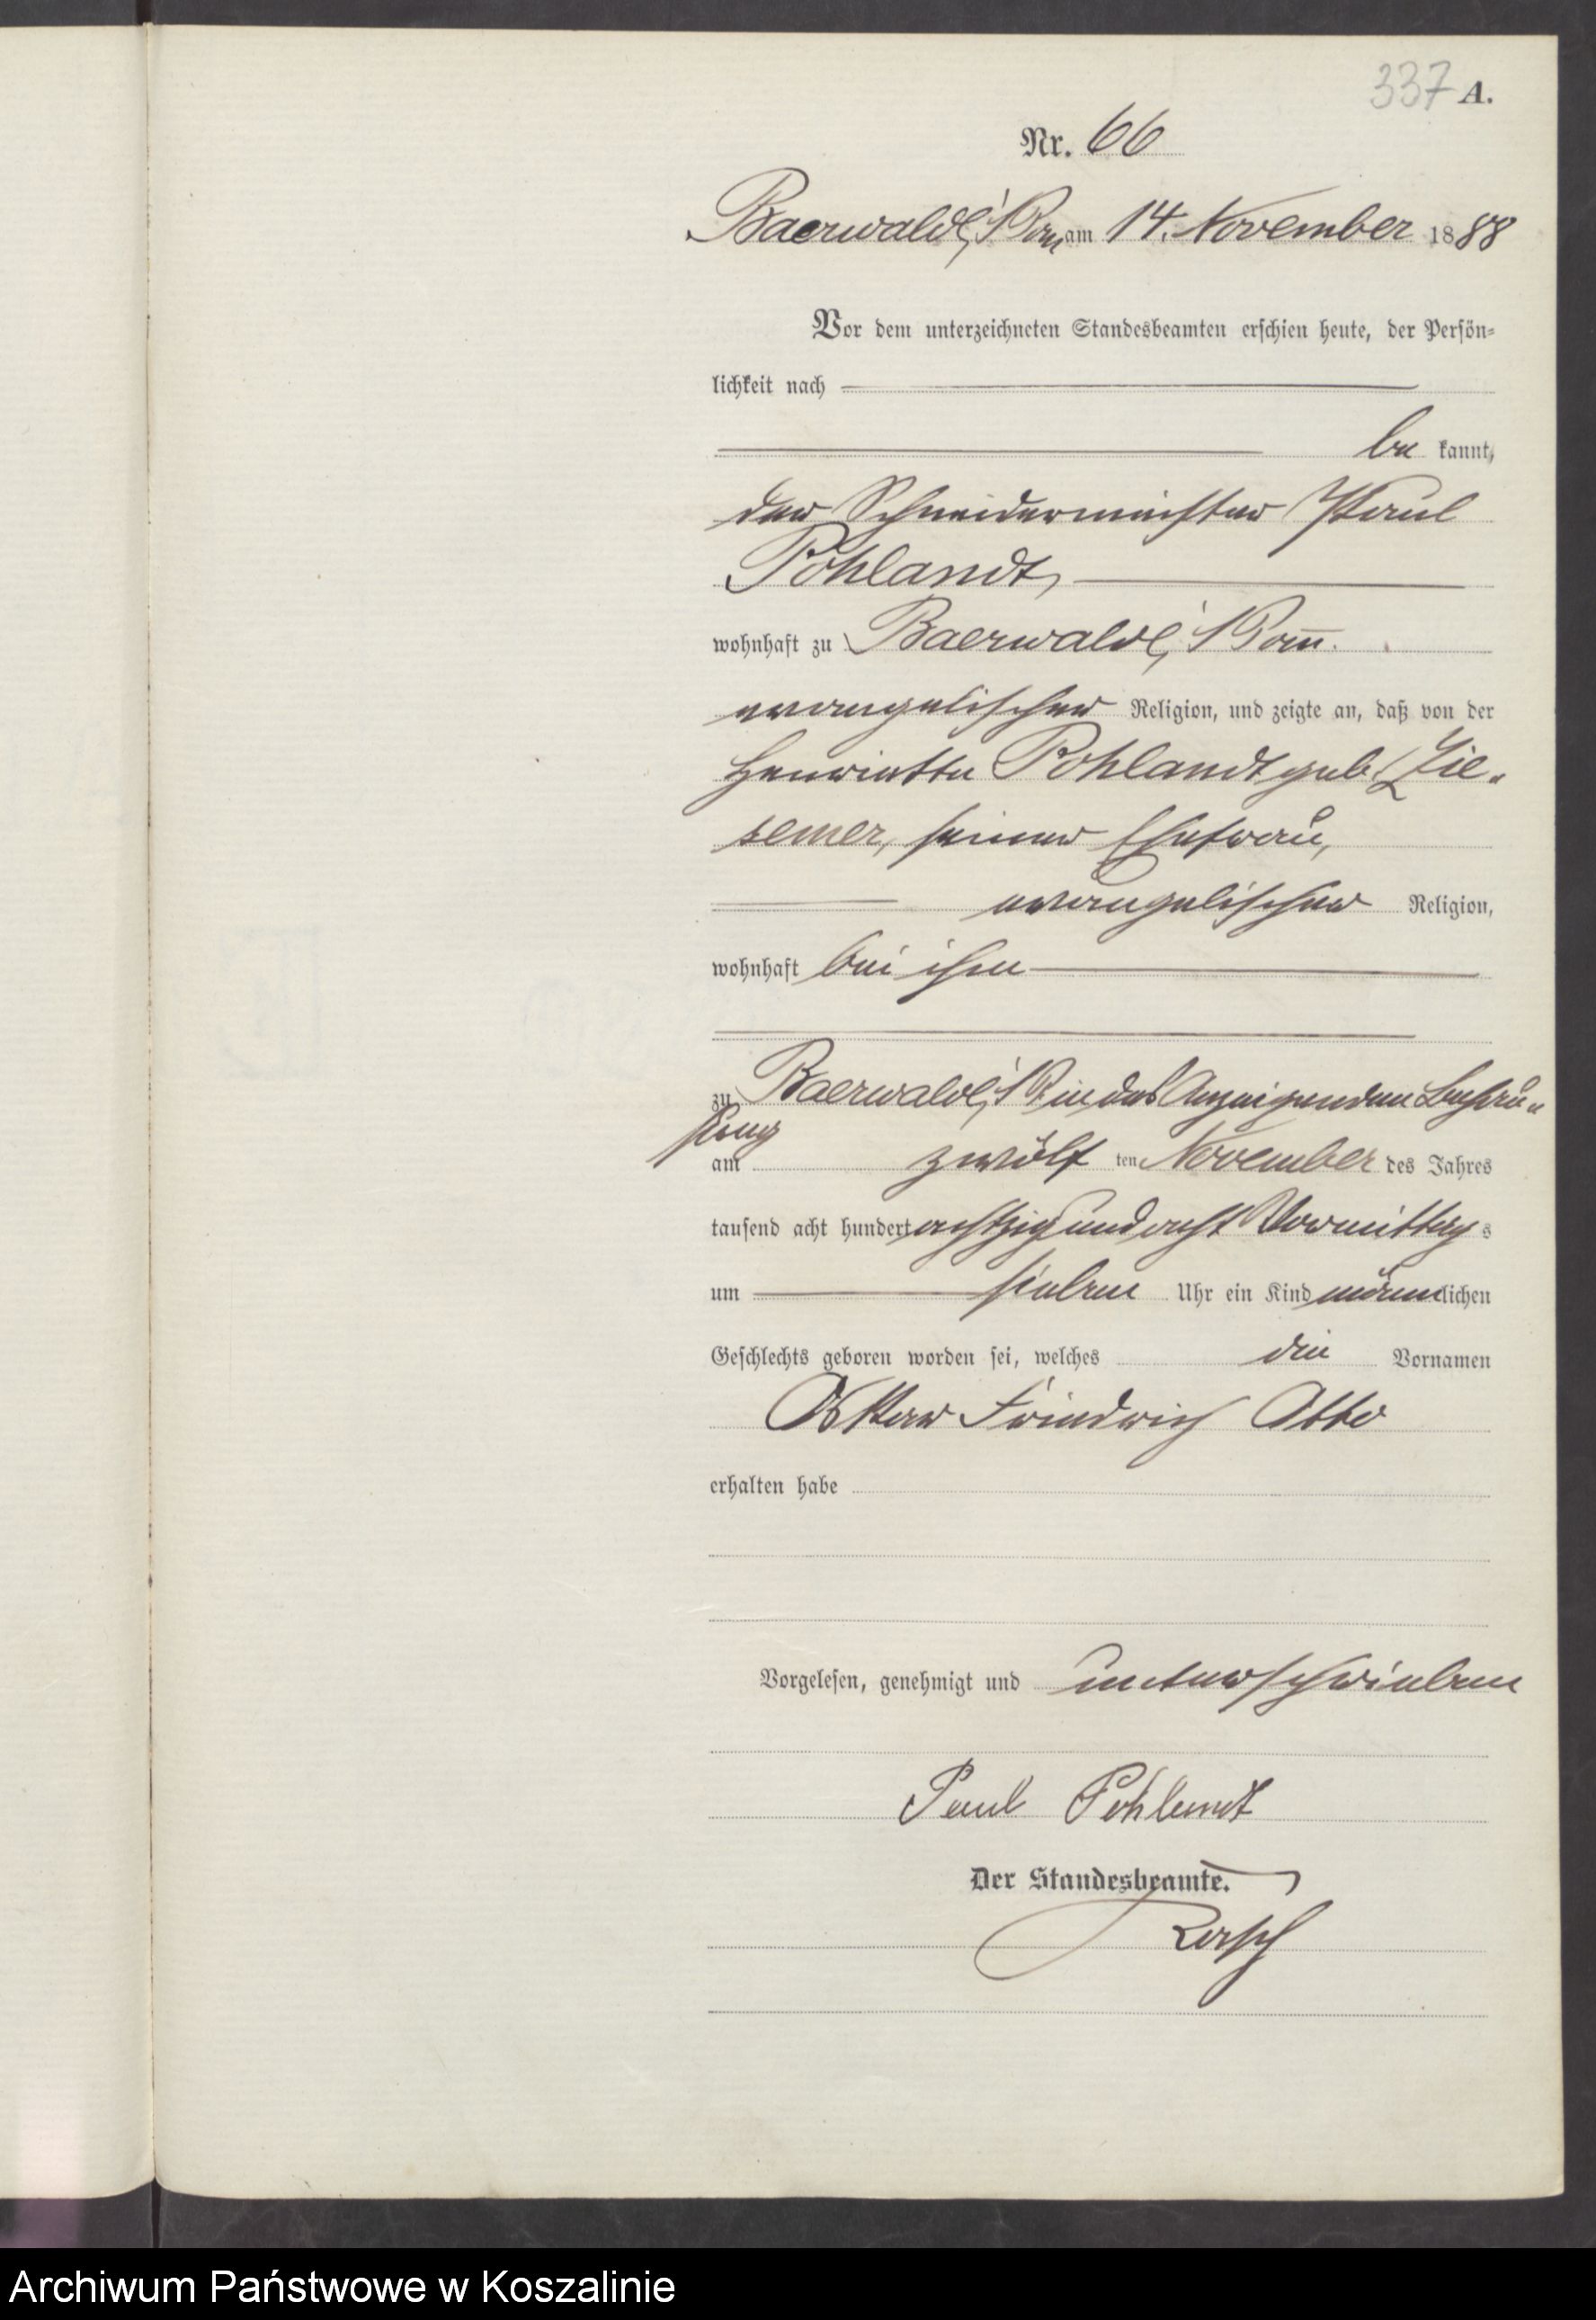 337 A.
Nr. 66
Baerwalde, Pom am 14. November 1888
Vor dem unterzeichneten Standesbeamten erschien heute, der Persön-
lichkeit nach
be kannt,
der Schneidermeister Paul
Pohlandt,
wohnhaft zu Baerwalde, Pom̅.
evangelischer Religion, und zeigte an, daß von der
Henriette Pohlandt geb. Zie-
semer, seiner Ehefrau,
evangelischer Religion,
wohnhaft bei ihm
zu Baerwalde, P in des Anzeigenden Behau-
sung
am zwölf ten November des Jahres
tausend acht hundert achtzig und acht Vormittag s
um sieben Uhr ein Kind männlichen
Geschlechts geboren worden sei, welches die Vornamen
Oskar Friedrich Otto
erhalten habe
Vorgelesen, genehmigt und unterschrieben
Paul Pohlandt
Der Standesbeamte.
Archiwum Państwowe w Koszalinie